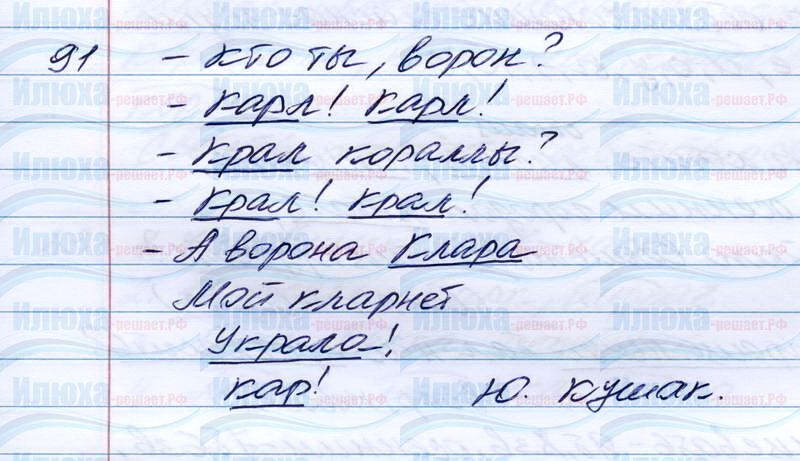 91 – Кто ты, ворон?
– Карл! Карл!
– Крал кораллы?
– Крал! Крал!
– А ворона Клара
Мой кларнет
Украла!
Кар! Ю. Кушак.
Илюха-решает.РФ